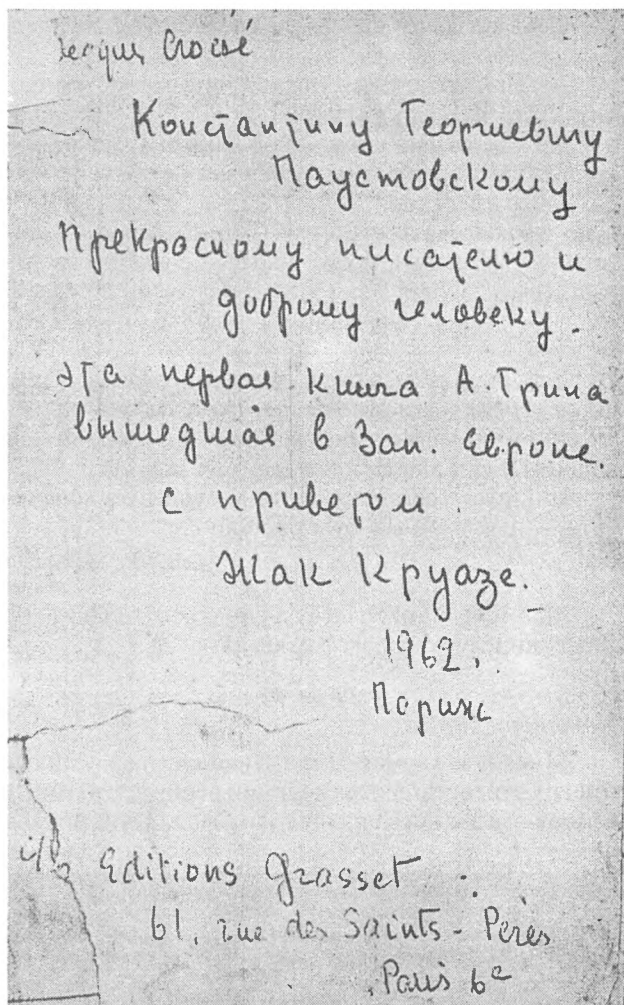 Jacques Croisé
Константину Георгиевичу
Паустовскому
Прекрасному писателю и
доброму человеку.
эта первая книга А. Грина
вышедшая в Зап. Европе.
с приветом.
Жак Круазе.
1962.
Париж
c/o Editions Grasset
61, rue des Saints-Pères
Paris 6e